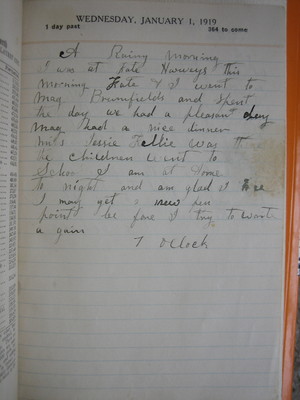 WEDNESDAY, JANUARY 1, 1919
1 day past 364 to come
A Rainy Morning
I was at Kate Harveys this
morning Kate & I went to
Mag Brumfields and Spent
the day we had a pleasant
Mag had a nice dinner
Jessie Kellie was there
the Children went to
School I am at Home
to night and am glad I
I may get a new pen
point be fore I try to write
a gain
7 OClock